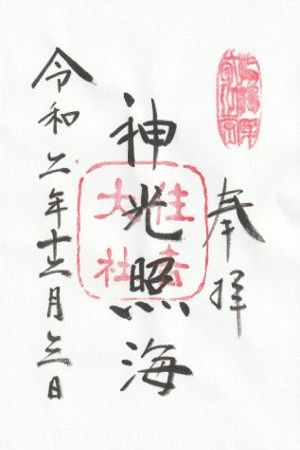 奉拝
神光照海
住吉大社
令和二年十二月三日